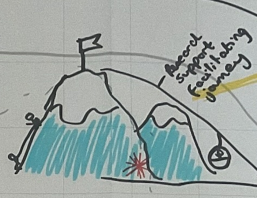 Record
support
facilitating
journey